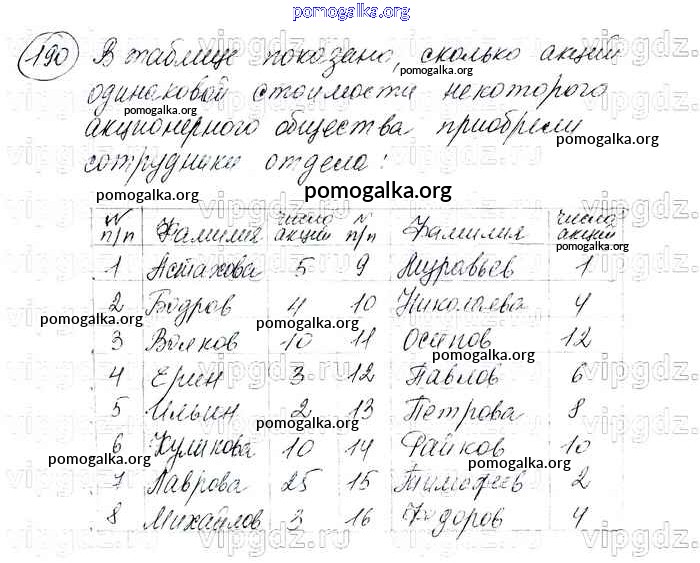 pomogalka.org
190 В таблице показано, сколько акций
pomogalka.org
одинаковой стоимости некоторого
акционерного общества приобрели
pomogalka.org
сотрудники отдела:
pomogalka.org
pomogalka.org
№ п/п Фамилия число акций № п/п Фамилия число акций
pomogalka.org
1 Астахова 5 9 Муравьев 1
2 Бодров 4 10 Николаева 4
pomogalka.org pomogalka.org pomogalka.org
3 Волков 10 11 Осипов 12
pomogalka.org
4 Ерин 3 12 Павлов 6
5 Ильин 2 13 Петрова 8
pomogalka.org pomogalka.org
6 Куликова 10 14 Райков 10
pomogalka.org pomogalka.org
7 Лаврова 25 15 Тимофеев 2
8 Михайлов 3 16 Федоров 4
pomogalka.org
vipgdz.ru